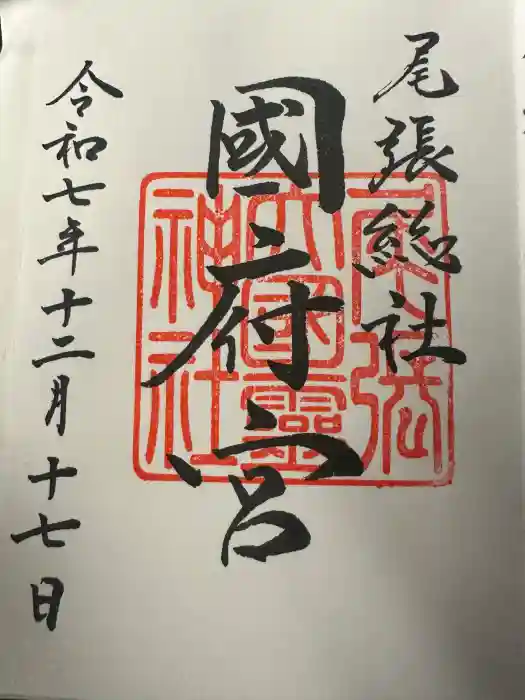 尾張総社
國府宮
令和七年十二月十七日
尾張
大國霊
神社